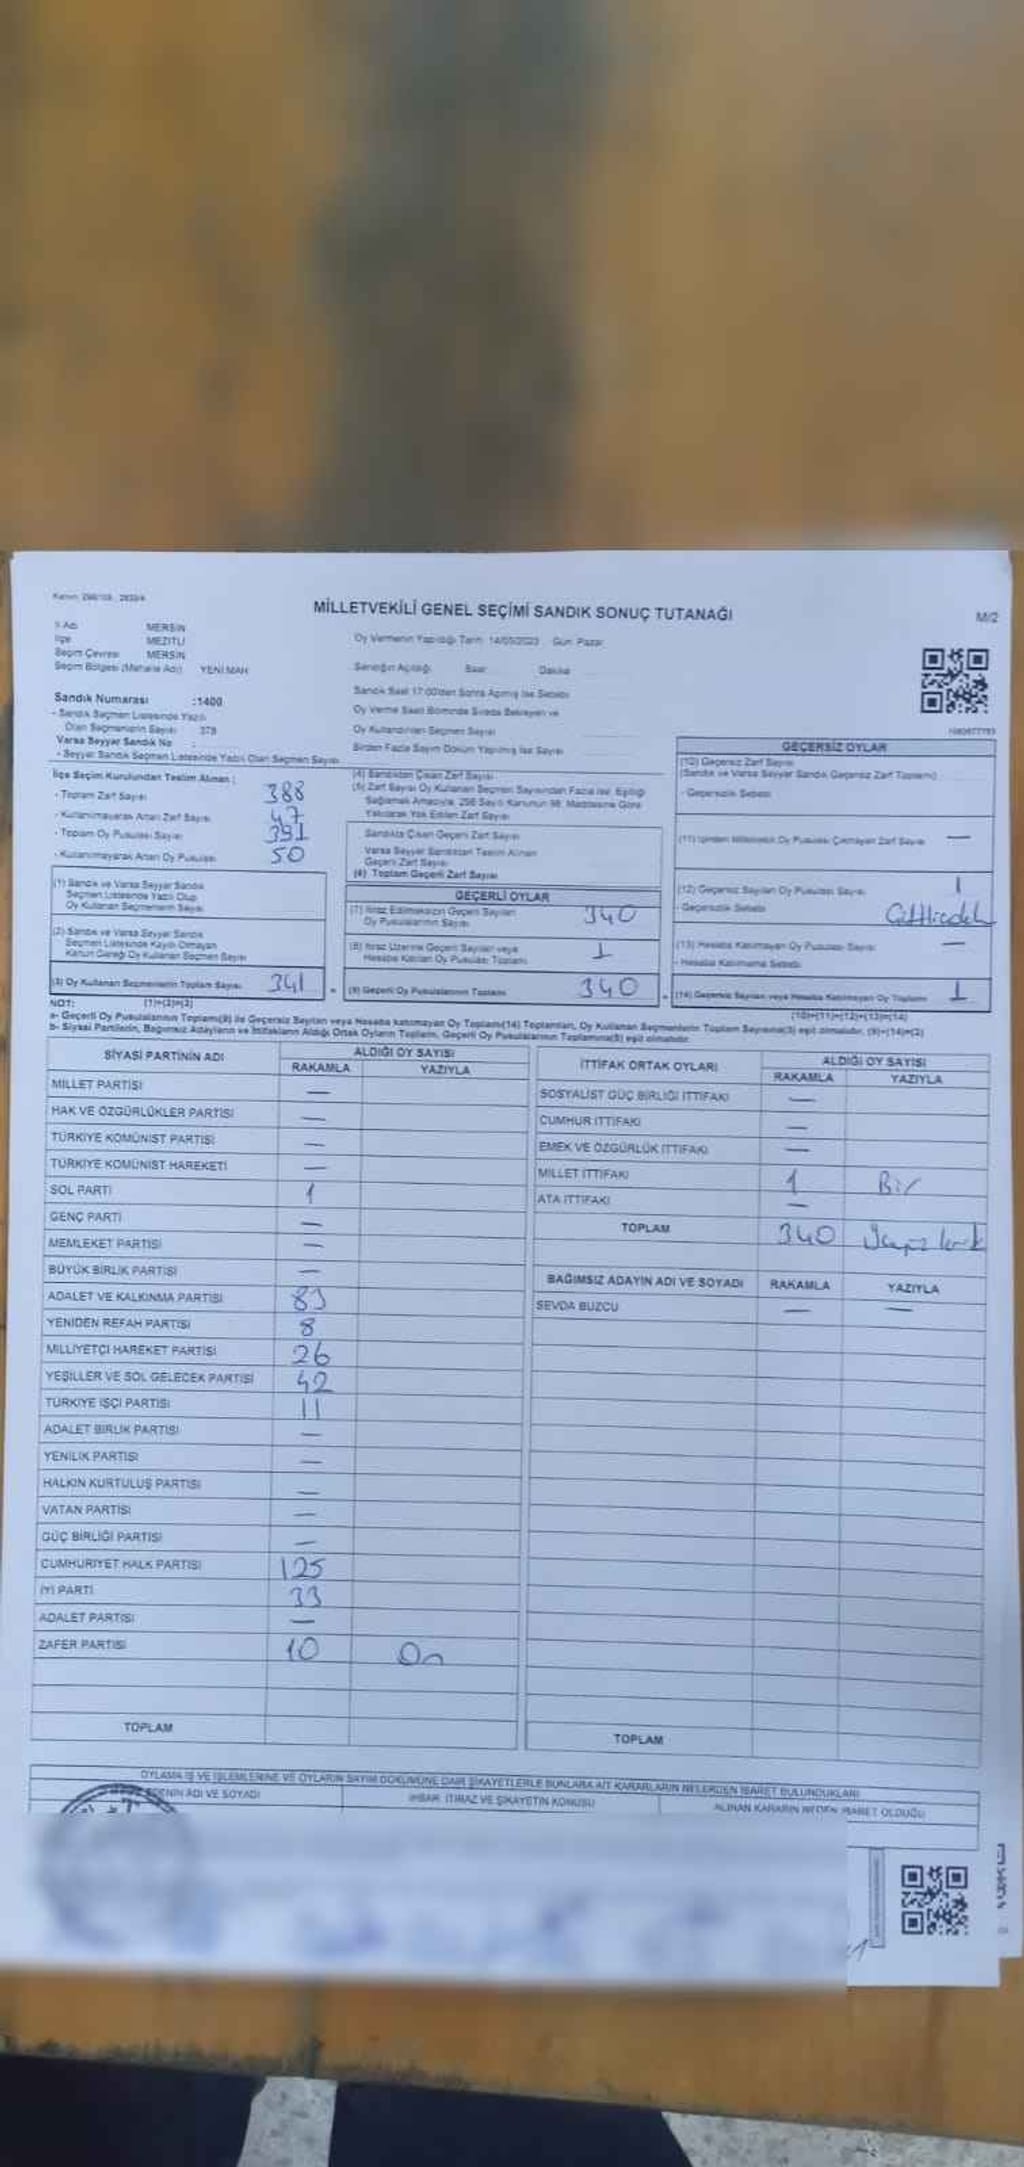 MİLLETVEKİLİ GENEL SEÇİMİ SANDIK SONUÇ TUTANAĞI
M/2
İl Adı MERSİN
İlçe MEZİTLİ
Seçim Çevresi MERSİN
Seçim Bölgesi (Mahalle Adı) YENİ MAH
Oy Vermenin Yapıldığı Tarih: 14/05/2023 Gün: Pazar
Sandığın Açıldığı Saat Dakika
Sandık Saat 17:00'den Sonra Açılmış İse Sebebi
Oy Verme Saati Bitiminde Sırada Bekleyen ve
Oy Kullandırılan Seçmen Sayısı
Birden Fazla Sayım Döküm Yapılmış İse Sayısı
Sandık Numarası :1400
- Sandık Seçmen Listesinde Yazılı
Olan Seçmenlerin Sayısı 379
Varsa Seyyar Sandık No :
- Seyyar Sandık Seçmen Listesinde Yazılı Olan Seçmen Sayısı
İlçe Seçim Kurulundan Teslim Alınan :
- Toplam Zarf Sayısı 388
- Kullanılmayarak Artan Zarf Sayısı 47
- Toplam Oy Pusulası Sayısı 391
- Kullanılmayarak Artan Oy Pusulası 50
(1) Sandık ve Varsa Seyyar Sandık
Seçmen Listesinde Yazılı Olup
Oy Kullanan Seçmenlerin Sayısı
(2) Sandık ve Varsa Seyyar Sandık
Seçmen Listesinde Kayıtlı Olmayan
Kanun Gereği Oy Kullanan Seçmen Sayısı
(3) Oy Kullanan Seçmenlerin Toplam Sayısı 341
(1)+(2)=(3)
(4) Sandıktan Çıkan Zarf Sayısı
(5) Zarf Sayısı Oy Kullanan Seçmen Sayısından Fazla ise, Eşitliği
Sağlamak Amacıyla, 298 Sayılı Kanunun 98. Maddesine Göre
Yakılarak Yok Edilen Zarf Sayısı
Sandıkta Çıkan Geçerli Zarf Sayısı
Varsa Seyyar Sandıktan Teslim Alınan
Geçerli Zarf Sayısı
(6) Toplam Geçerli Zarf Sayısı
GEÇERLİ OYLAR
(7) İtiraz Edilmeksizin Geçerli Sayılan
Oy Pusulalarının Sayısı 340
(8) İtiraz Üzerine Geçerli Sayılan veya
Hesaba Katılan Oy Pusulası Toplamı 1
(9) Geçerli Oy Pusulalarının Toplamı 340
GEÇERSİZ OYLAR
(10) Geçersiz Zarf Sayısı
(Sandık ve Varsa Seyyar Sandık Geçersiz Zarf Toplamı)
- Geçersizlik Sebebi
(11) İçinden Milletvekili Oy Pusulası Çıkmayan Zarf Sayısı —
(12) Geçersiz Sayılan Oy Pusulası Sayısı 1
- Geçersizlik Sebebi
(13) Hesaba Katılmayan Oy Pusulası Sayısı —
- Hesaba Katılmama Sebebi
(14) Geçersiz Sayılan veya Hesaba Katılmayan Oy Toplamı 1
(10)+(11)+(12)+(13)=(14)
NOT:
a- Geçerli Oy Pusulalarının Toplamı(9) ile Geçersiz Sayılan veya Hesaba katılmayan Oy Toplamı(14) Toplamları, Oy Kullanan Seçmenlerin Toplam Sayısına(3) eşit olmalıdır. (9)+(14)=(3)
b- Siyasi Partilerin, Bağımsız Adayların ve İttifakların Aldığı Ortak Oyların Toplamı, Geçerli Oy Pusulalarının Toplamına(9) eşit olmalıdır.
SİYASİ PARTİNİN ADI ALDIĞI OY SAYISI
RAKAMLA YAZIYLA
MİLLET PARTİSİ —
HAK VE ÖZGÜRLÜKLER PARTİSİ —
TÜRKİYE KOMÜNİST PARTİSİ —
TÜRKİYE KOMÜNİST HAREKETİ —
SOL PARTİ 1
GENÇ PARTİ —
MEMLEKET PARTİSİ —
BÜYÜK BİRLİK PARTİSİ —
ADALET VE KALKINMA PARTİSİ 83
YENİDEN REFAH PARTİSİ 8
MİLLİYETÇİ HAREKET PARTİSİ 26
YEŞİLLER VE SOL GELECEK PARTİSİ 42
TÜRKİYE İŞÇİ PARTİSİ 11
ADALET BİRLİK PARTİSİ —
YENİLİK PARTİSİ —
HALKIN KURTULUŞ PARTİSİ —
VATAN PARTİSİ —
GÜÇ BİRLİĞİ PARTİSİ —
CUMHURİYET HALK PARTİSİ 125
İYİ PARTİ 33
ADALET PARTİSİ —
ZAFER PARTİSİ 10 On
TOPLAM
İTTİFAK ORTAK OYLARI ALDIĞI OY SAYISI
RAKAMLA YAZIYLA
SOSYALİST GÜÇ BİRLİĞİ İTTİFAKI —
CUMHUR İTTİFAKI —
EMEK VE ÖZGÜRLÜK İTTİFAKI —
MİLLET İTTİFAKI 1 Bir
ATA İTTİFAKI —
TOPLAM 340
BAĞIMSIZ ADAYIN ADI VE SOYADI RAKAMLA YAZIYLA
SEVDA BUZCU — —
TOPLAM
OYLAMA İŞ VE İŞLEMLERİNE VE OYLARIN SAYIM DÖKÜMÜNE DAİR ŞİKAYETLERLE BUNLARA AİT KARARLARIN NELERDEN İBARET BULUNDUKLARI
ADI VE SOYADI
İHBAR, İTİRAZ VE ŞİKAYETİN KONUSU
ALINAN KARARIN NEDEN İBARET OLDUĞU